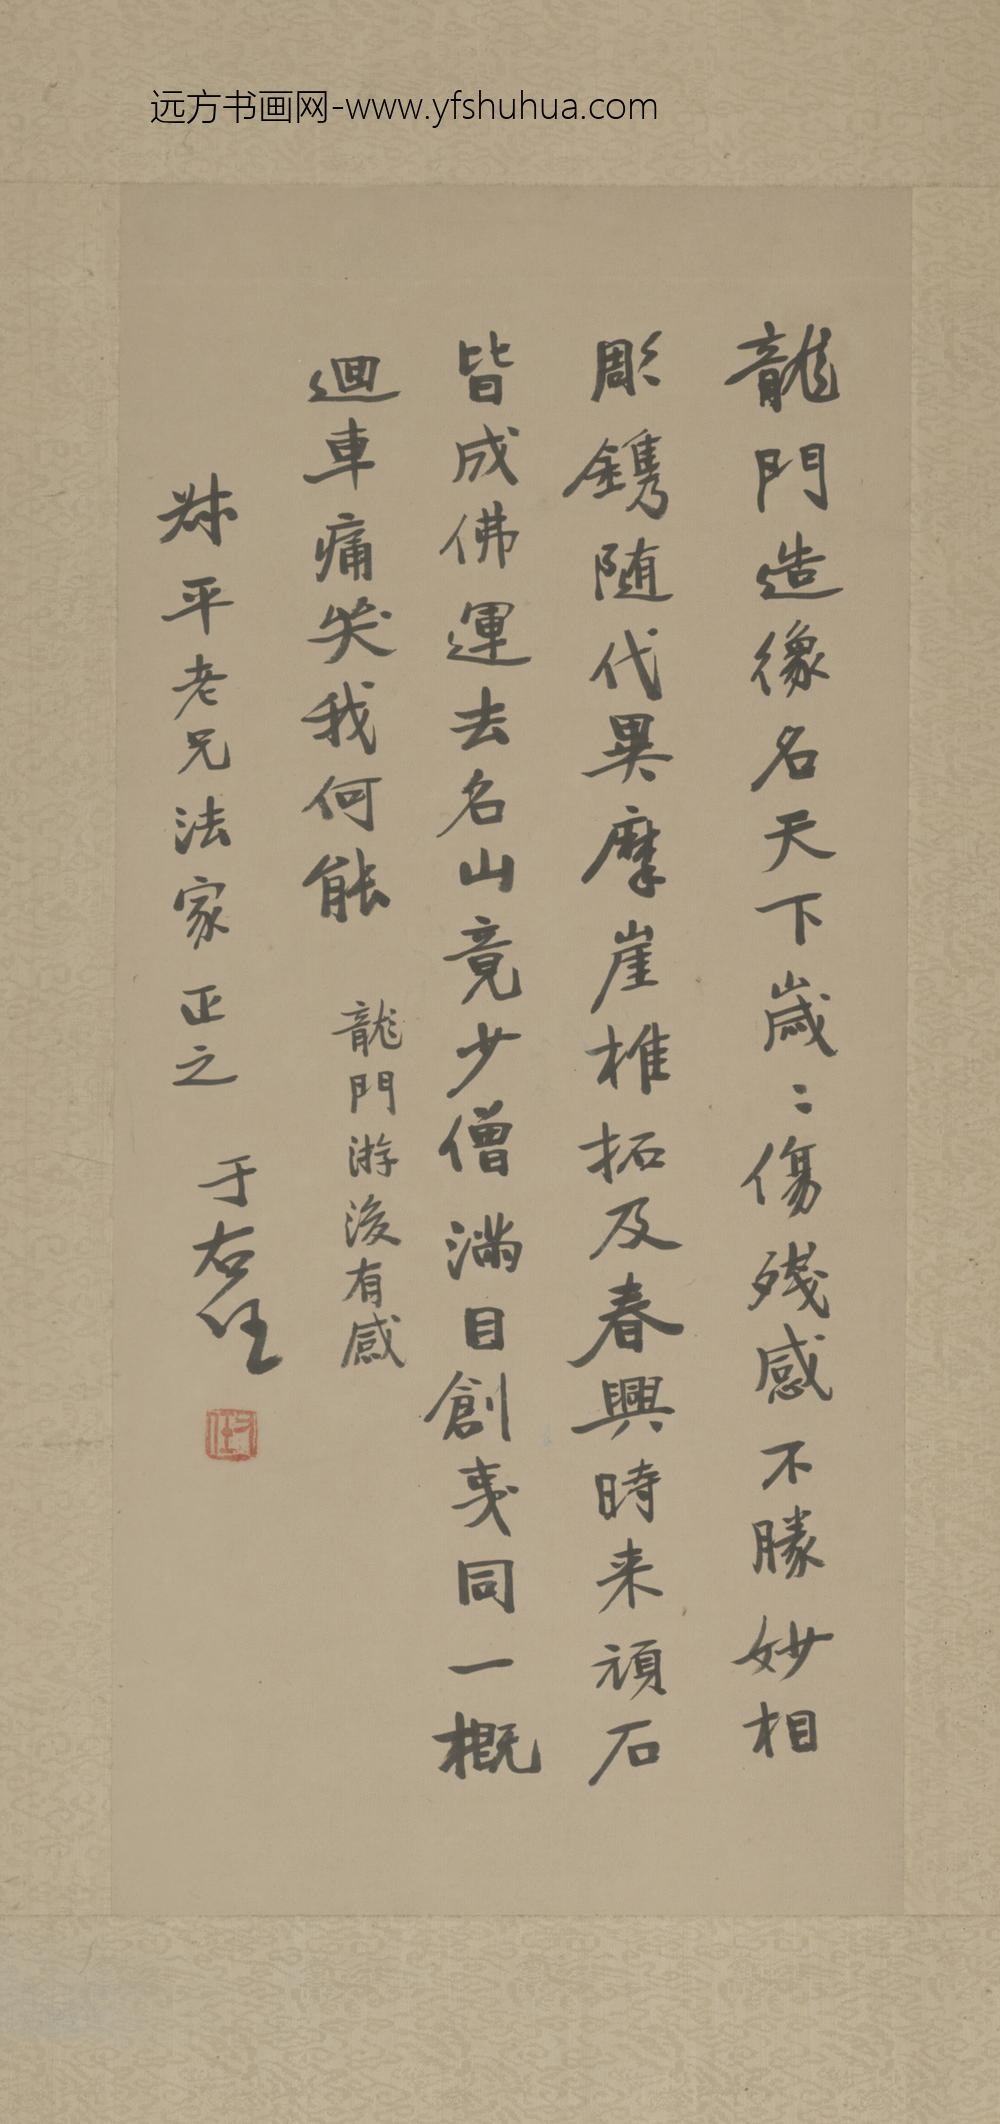 远方书画网-www.yfshuhua.com
龍門造像名天下歲〻傷殘感不勝妙相
彫鐫随代異摩崖椎拓及春興時来頑石
皆成佛運去名山竟少僧滿目創夷同一概
迴車痛哭我何能
龍門游後有感
叔平老兄法家正之
于右任